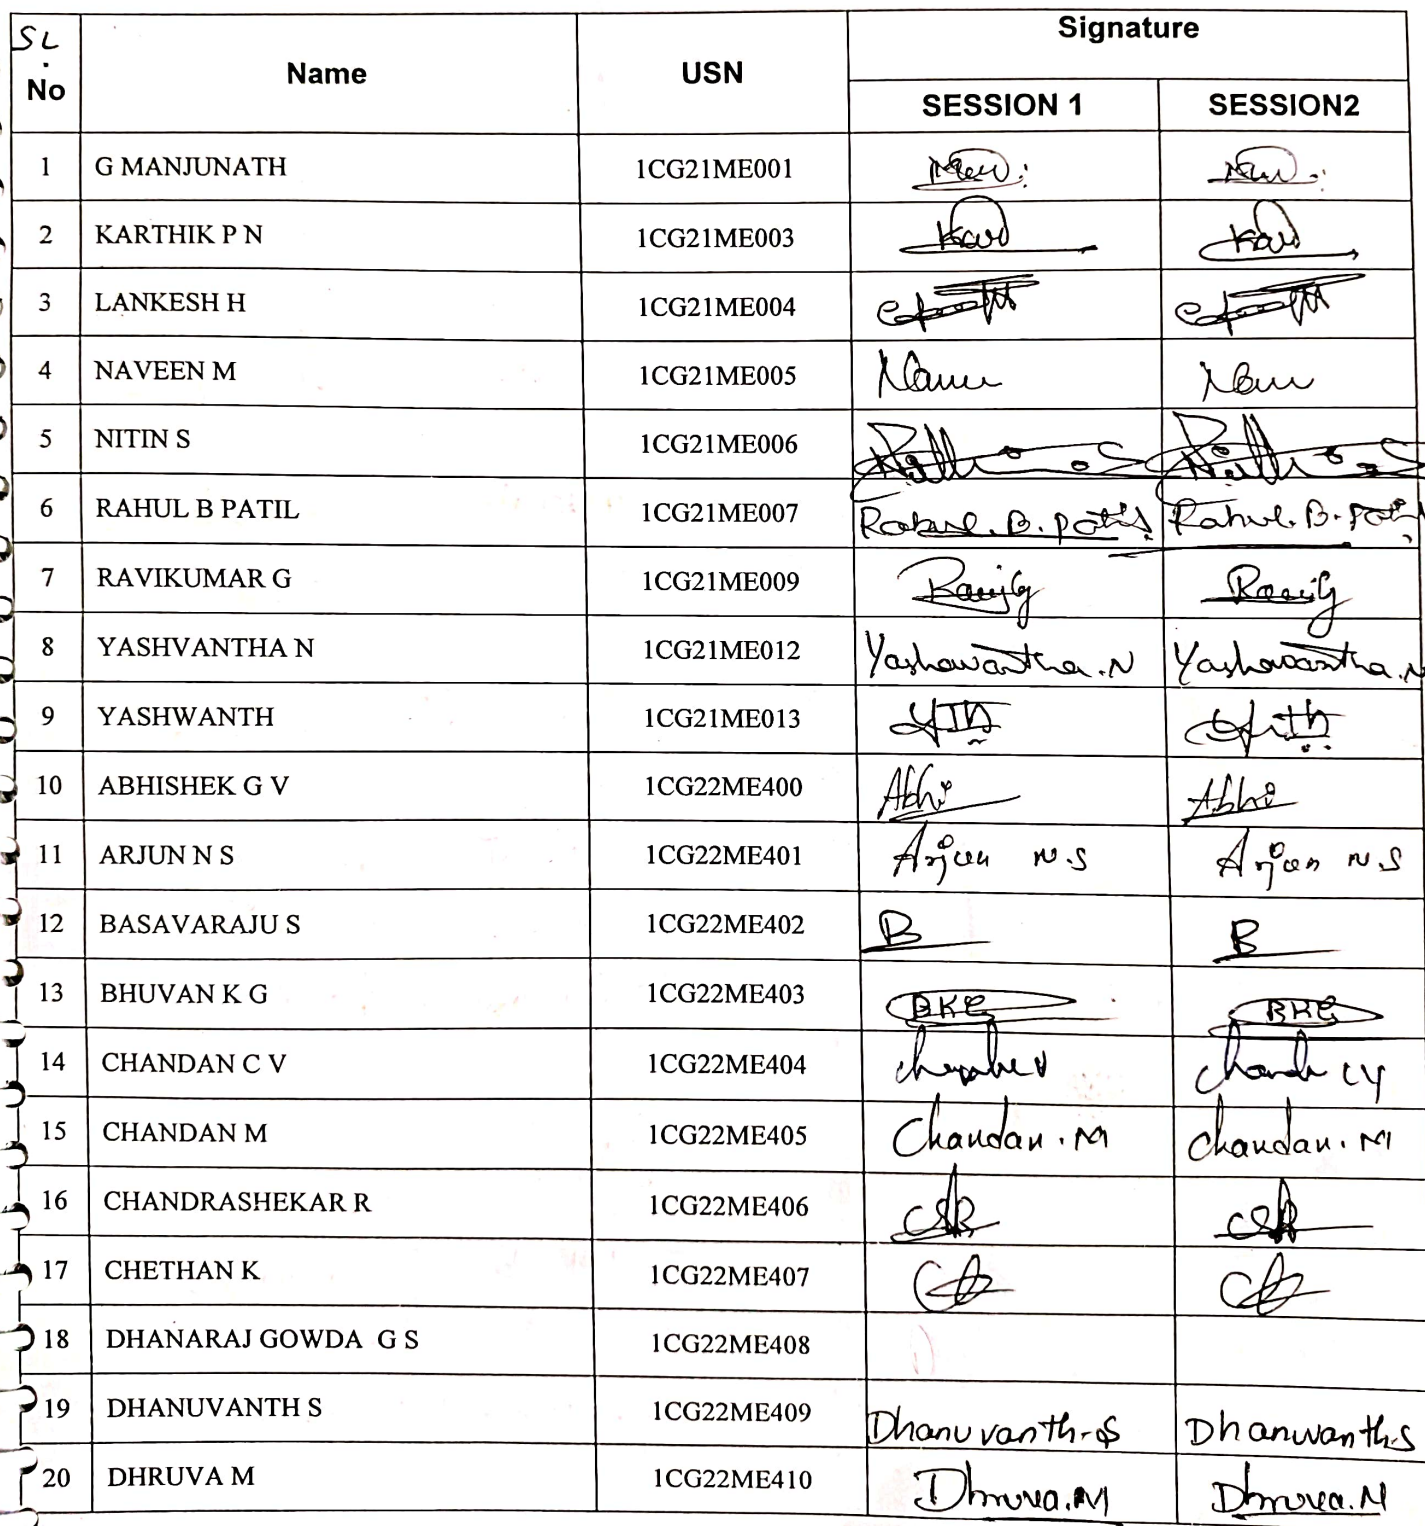 SL. No Name USN Signature
SESSION 1 SESSION2
1 G MANJUNATH 1CG21ME001
2 KARTHIK P N 1CG21ME003
3 LANKESH H 1CG21ME004
4 NAVEEN M 1CG21ME005
5 NITIN S 1CG21ME006
6 RAHUL B PATIL 1CG21ME007 Rahul. B. patil Rahul. B. Patil
7 RAVIKUMAR G 1CG21ME009 Ravi G Ravi G
8 YASHVANTHA N 1CG21ME012 Yashavantha.N Yashavantha.N
9 YASHWANTH 1CG21ME013
10 ABHISHEK G V 1CG22ME400 Abhi Abhi
11 ARJUN N S 1CG22ME401 Arjun N.S Arjun N.S
12 BASAVARAJU S 1CG22ME402 B B
13 BHUVAN K G 1CG22ME403 BKG BKG
14 CHANDAN C V 1CG22ME404
15 CHANDAN M 1CG22ME405 Chandan.M Chandan.M
16 CHANDRASHEKAR R 1CG22ME406
17 CHETHAN K 1CG22ME407
18 DHANARAJ GOWDA G S 1CG22ME408
19 DHANUVANTH S 1CG22ME409 Dhanuvanth-S Dhanuvanth.S
20 DHRUVA M 1CG22ME410 Dhruva.M Dhruva.M